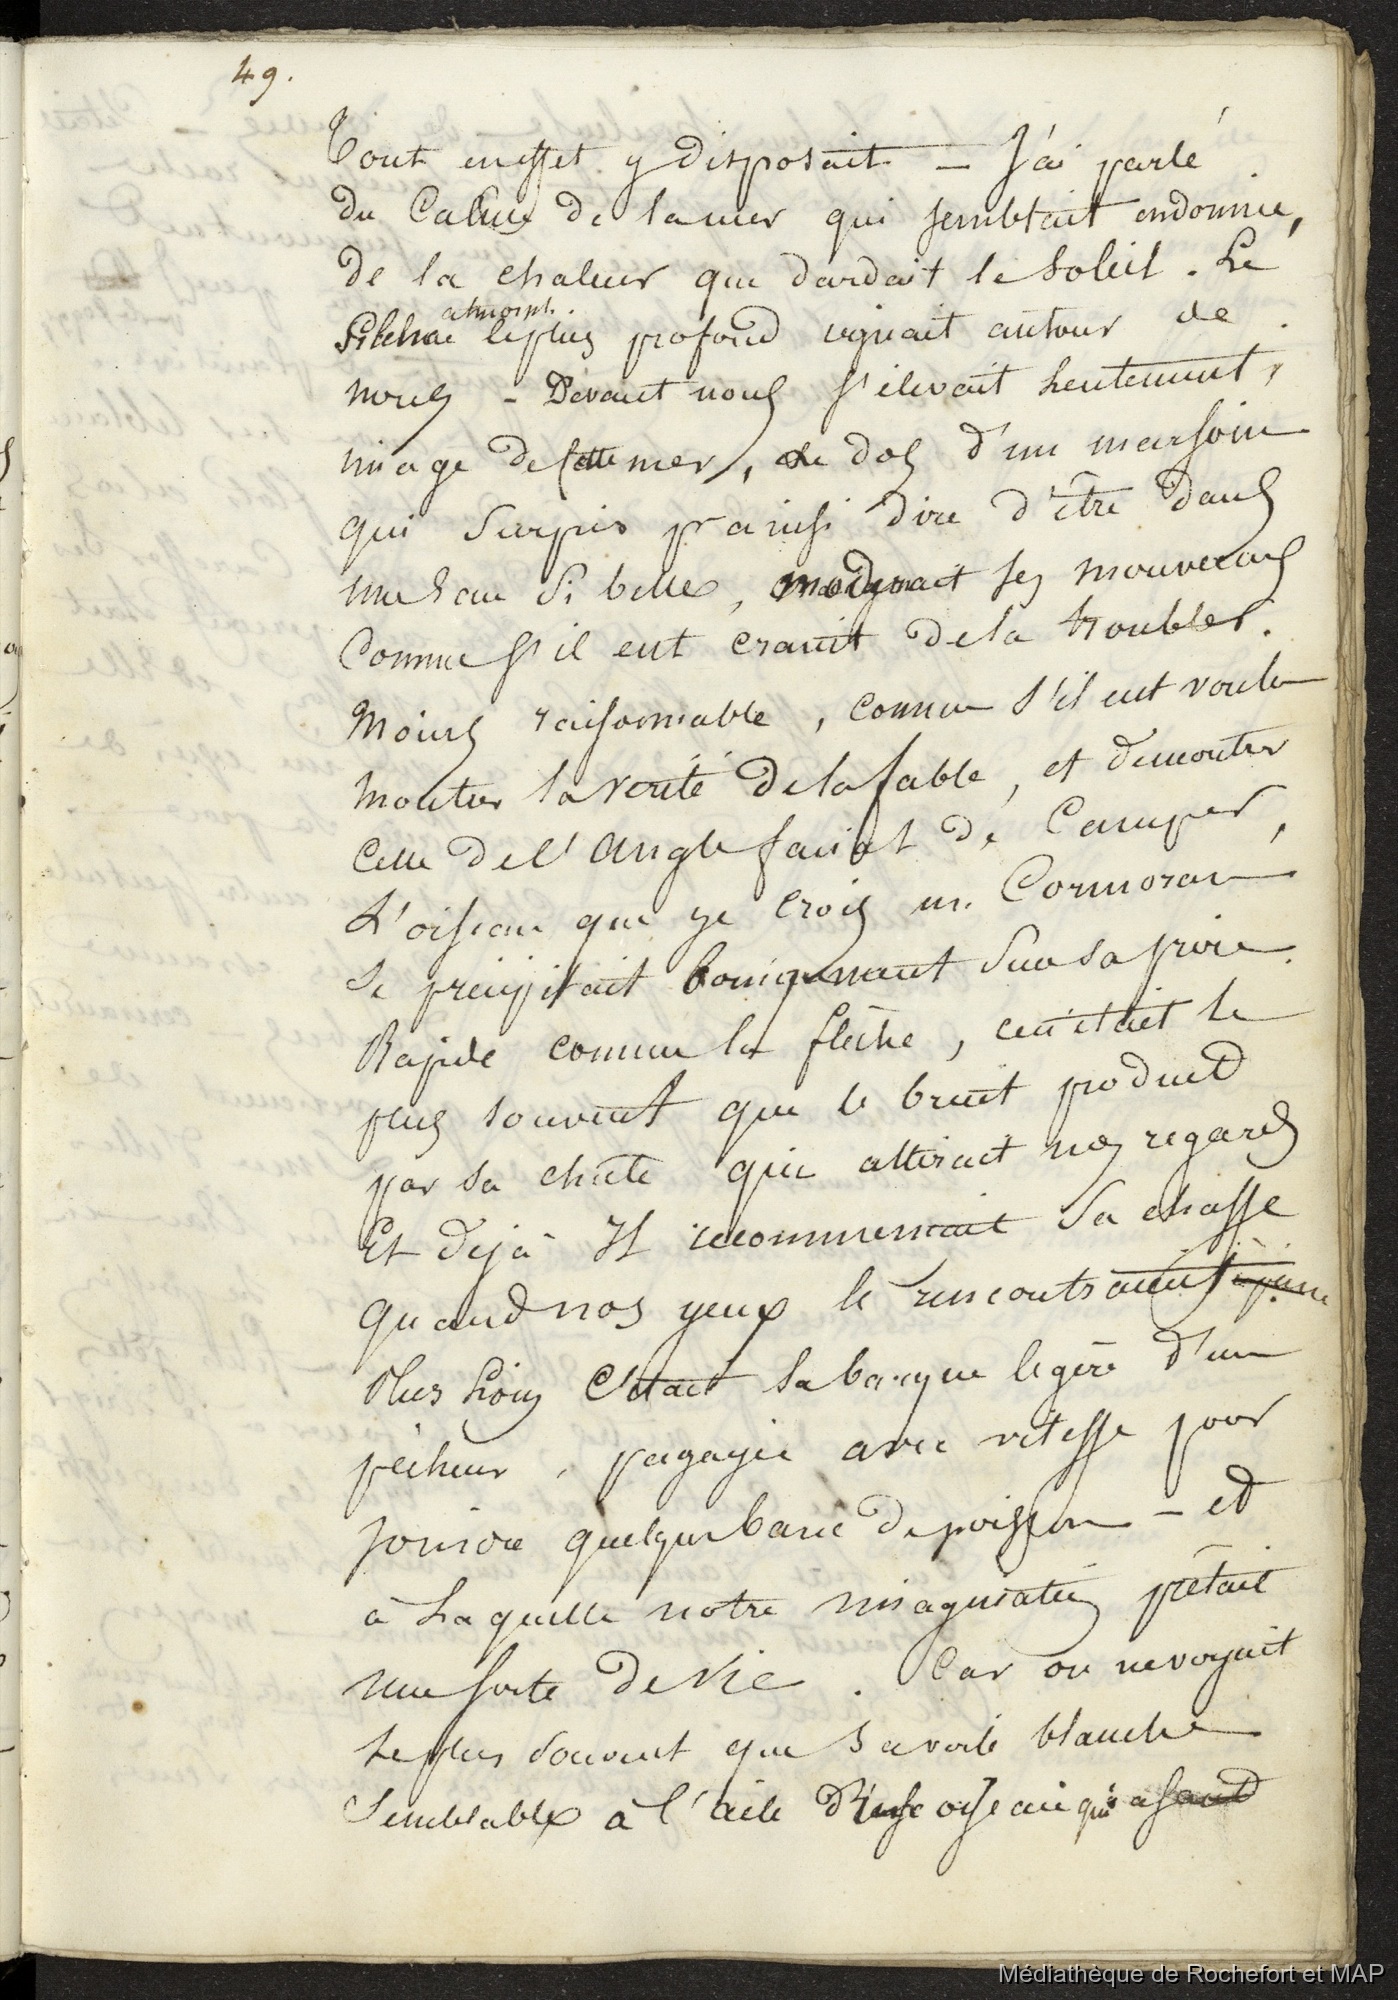 49.
Tout en effet y disposait - J'ai parlé
du Calme de la mer qui semblait endormie,
de la chaleur que dardait le soleil. Le
atmosph.
Silence le plus profond regnait autour de
nous - Devant nous s'elevait lentement,
image de cette mer, le dos d'un marsoin
qui surpris pr ainsi dire d'être dans
une eau si belle, moderait ses mouvemens
Comme s'il eut craint de la troubler.
Moins raisonnable, comme s'il eut voulu
montrer la verité de la fable, et demontrer
celle de l'angle facial de Camper,
L'oiseau que je crois un Cormoran
se precipitait sur sa proie.
Rapide comme la flêche, ce n'etait le
plus souvent que le bruit produit
par sa chute qui attirait nos regards
Et dejà Il recommencait sa chasse
quand nos yeux le rencontraient à peine
Plus Loin C'etait la barque legère d'un
pêcheur, pagayée avec vitesse pour
joindre quelque banc de poisson - et
à Laquelle notre imagination prêtait
une sorte de vie. Car on ne voyait
le plus souvent que sa voile blanche
Semblable à l'aile d'un oiseau qui
Médiathèque de Rochefort et MAP